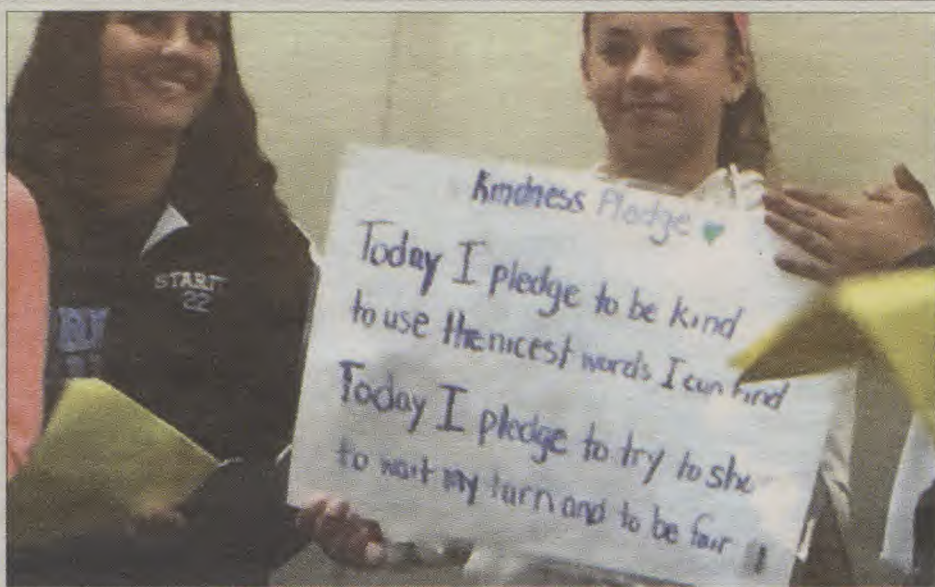 START
22
Kindness Pledge
Today I pledge to be kind
to use the nicest words I can find
Today I pledge to try to
to wait my turn and to be fair !!